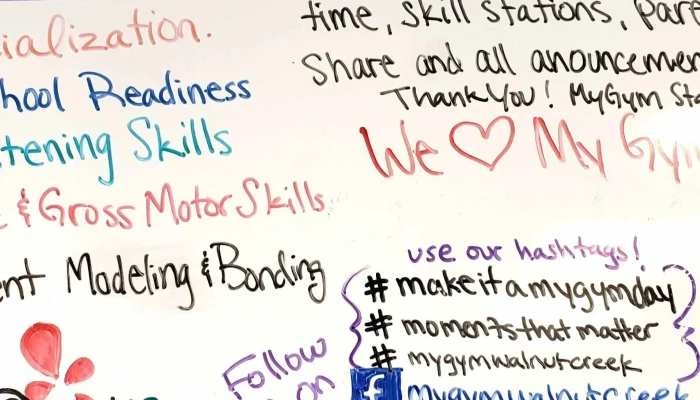 ialization.
hool Readiness
tening Skills
& Gross Motor Skills
ent Modeling & Bonding
time, skill stations, pare
Share and all anouncemen
Thank You! MyGym Sta
We ♡ My Gym
use our hashtags!
# makeitamygymday
# momentsthatmatter
# mygymwalnutcreek
Follow
on
f mygymwalnutcreek